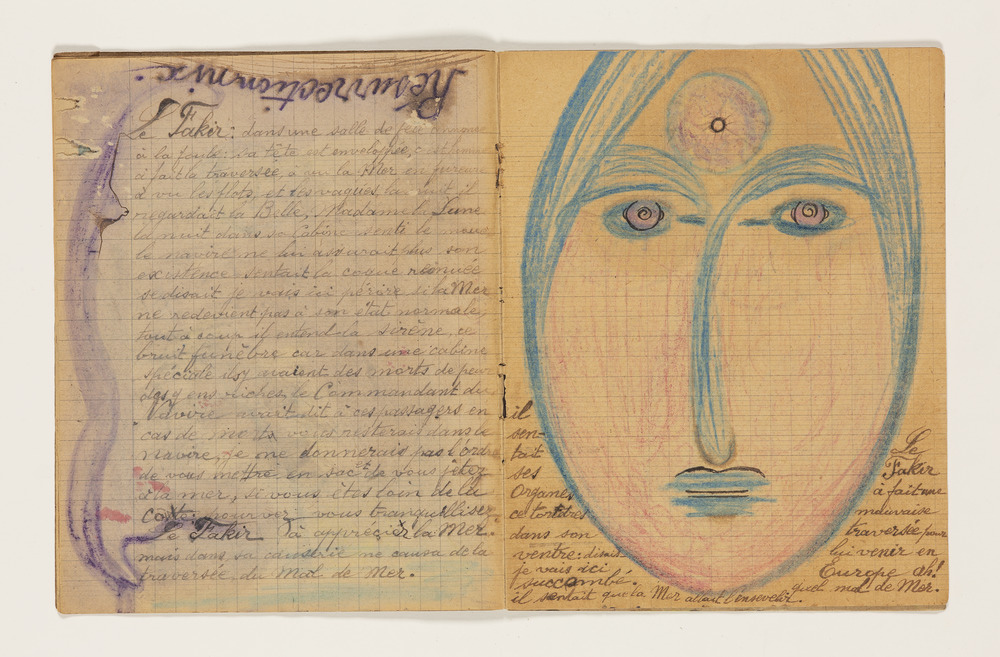 Résurrectionnix:
Le Fakir: dans une salle de fête
à la foule: sa tête est enveloppée,
à fait la traversée, à vu la Mer en
à vu les flots, et ses vagues, la nuit il
regardait la Belle, Madame la Lune
la nuit dans sa Cabine senté le
le navire ne lui assurait plus son
existence sentait la coque remuée
se disait je vais ici périre si la Mer
ne redevient pas à son état normale,
tout à coup il entend la sirêne, ce
bruit funèbre car dans une cabine
spéciale il y avaient des morts de peur
des y ensevliches, le Commandant du
Navire avait dit à ces passagers en
cas de morts vous resterai dans le
navire, je me donnerais pas l'ordre
de vous mettre en sac et de vous jetez
à la mer, si vous êtes loin de la
pour ver vous tranquilisez
Le Fakir à apprécier la Mer.
mais dans sa causerie me causa de la
traversée, du Mal de Mer.
il
sen-
tait
ses
Organes
ce tordres
dans son
ventre: disait
je vais ici
succombé.
il sentait que la Mer allait l'ensevelir.
Le
Fakir
à fait une
mauvaise
traversée pour
lui venir en
Europe Oh!
quel mal de Mer.